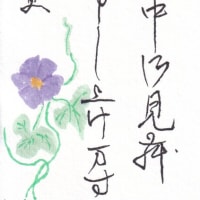 中御見舞
申し上げます